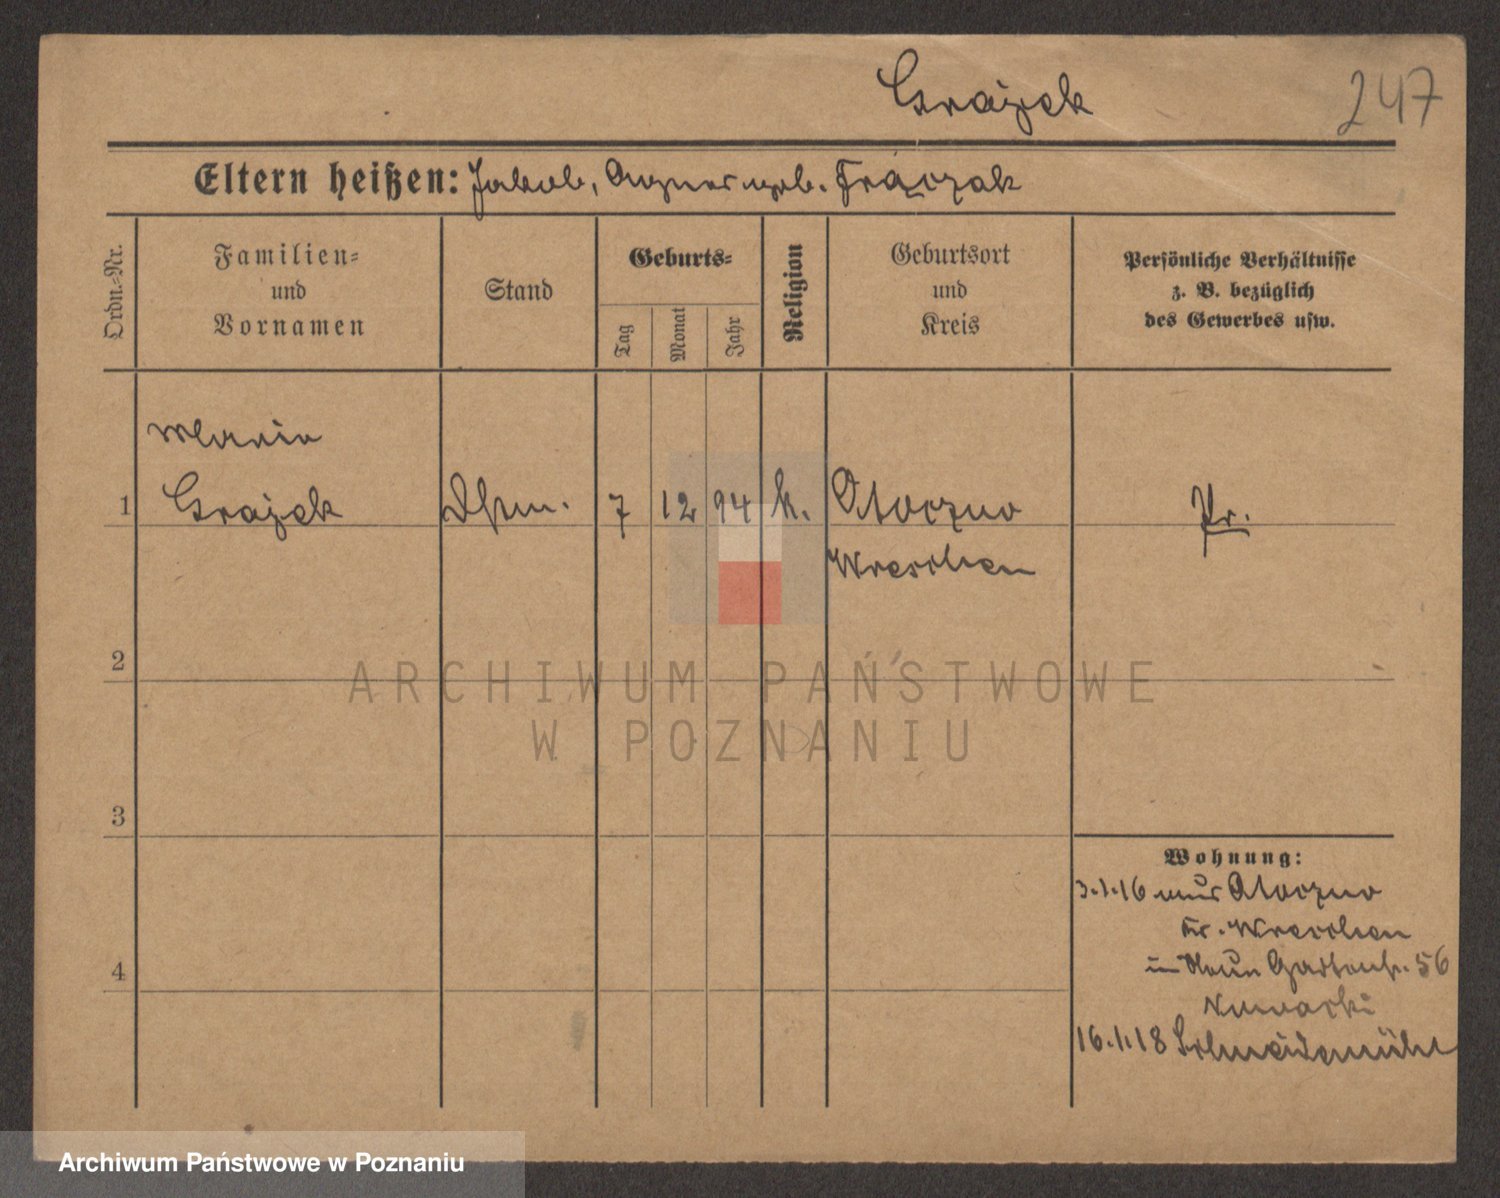 Grajek 247
Eltern heißen: Jakob, Agnes geb. Frączak
Ordn.-Nr.
Familien-
und
Vornamen
Stand
Geburts-
Tag
Monat
Jahr
Religion
Geburtsort
und
Kreis
Persönliche Verhältnisse
z. B. bezüglich
des Gewerbes usw.
Maria
1 Grajek 7 12 94 k. Otoczno Pr.
Wreschen
2
ARCHIWUM PAŃSTWOWE
W POZNANIU
3
Wohnung:
3.1.16 aus Otoczno
Kr. Wreschen
in Gartenstr. 56
4
Nowacki
16.1.18 Schneidemühl
Archiwum Państwowe w Poznaniu